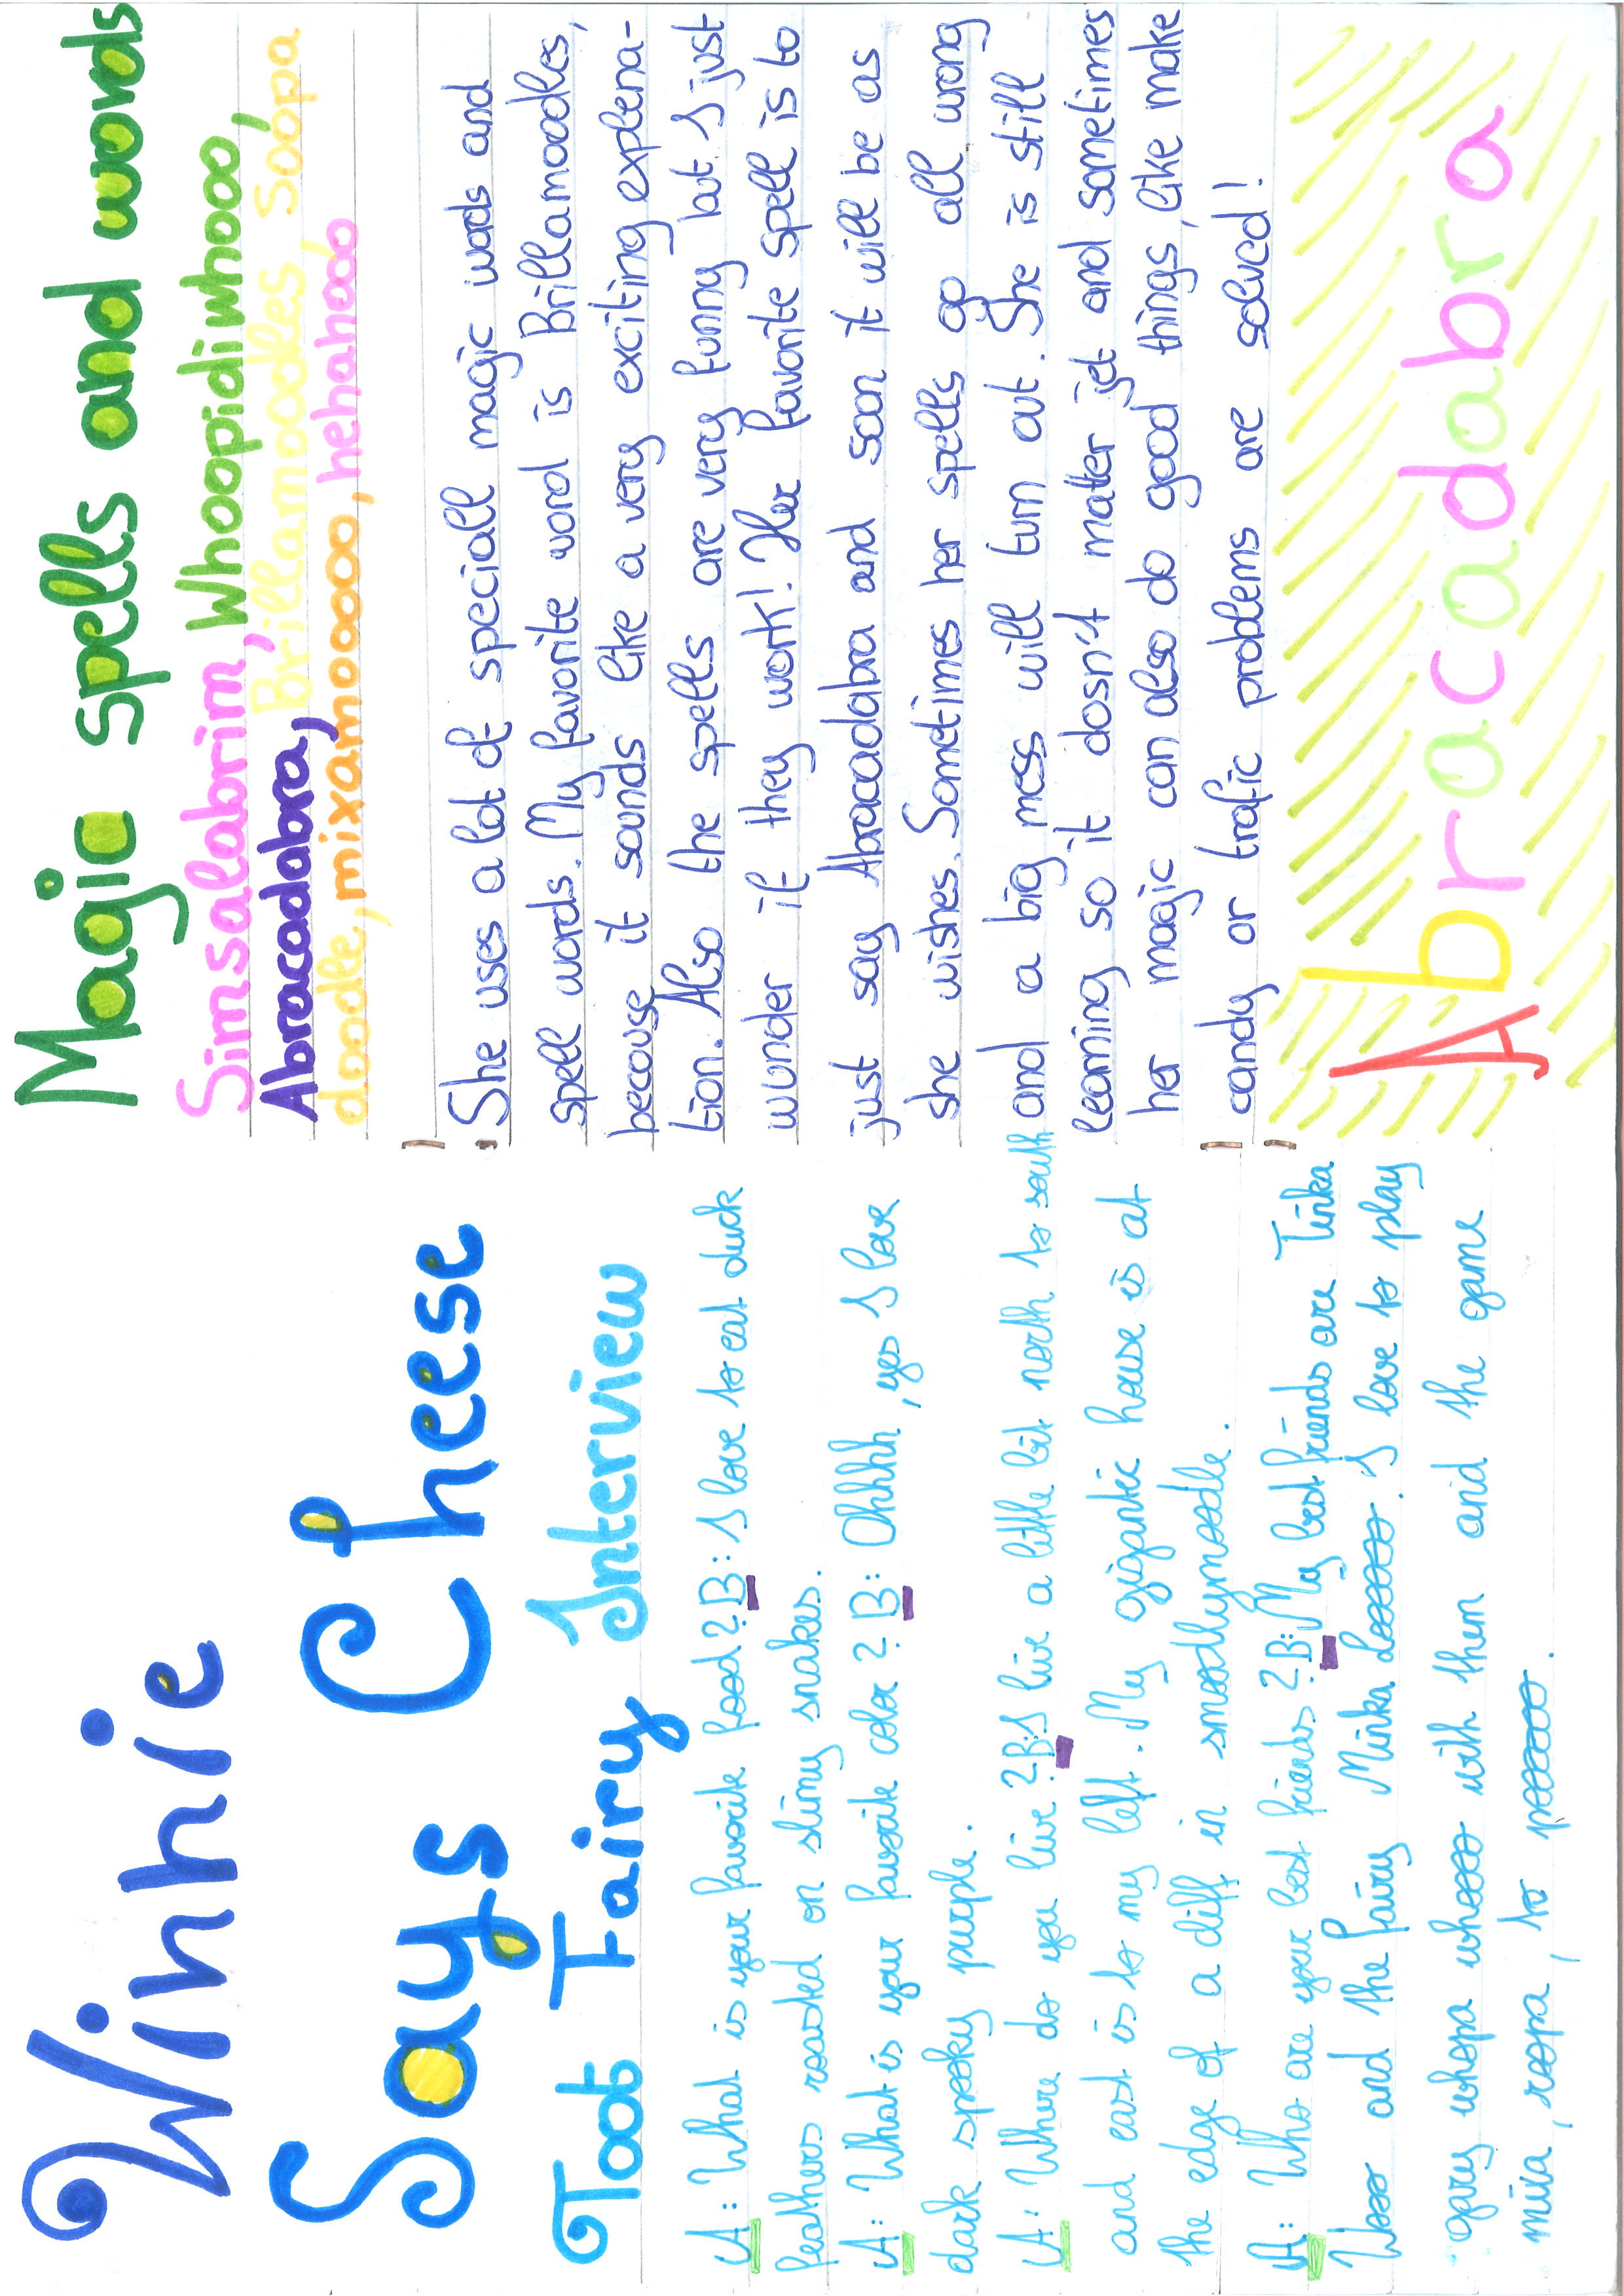 Winnie
Says Cheese
Toot Fairy Interview
A: What is your favorite food? B: I love to eat duck
feathers roasted on slimy snakes.
A: What is your favorite color? B: Ohhhh, yes I love
dark spooky purple.
A: Where do you live? B: I live a little bit north to south
and east is to my left. My gigantic house is at
the edge of a diff in smodlymoodle.
A: Who are your best friends? B: My best friends are Tinka
Wooo and the fairy Minka looooo. I love to play
gary whopa whoooo with them and the game
miia, roopa, to pooooo.
Magic spells and words
Simsalabrim, Whoopidiwhooo,
Abracadabra, Brillamoodles Soopa
doodle, mixamooooo, hehahooo
She uses a lot of speciall magic words and
spell words. My favorite word is Brillamoodles,
becouse it sounds like a very exciting explena-
tion. Also the spells are very funny but I just
wunder if they work! Her favorite spell is to
just say Abracadabra and soon it will be as
she wishes. Sometimes her spells go all wrong
and a big mess will turn out. She is still
learning so it dosn't mater jet and sometimes
her magic can also do good things, like make
candy or trafic problems are solved!
Abracadabra